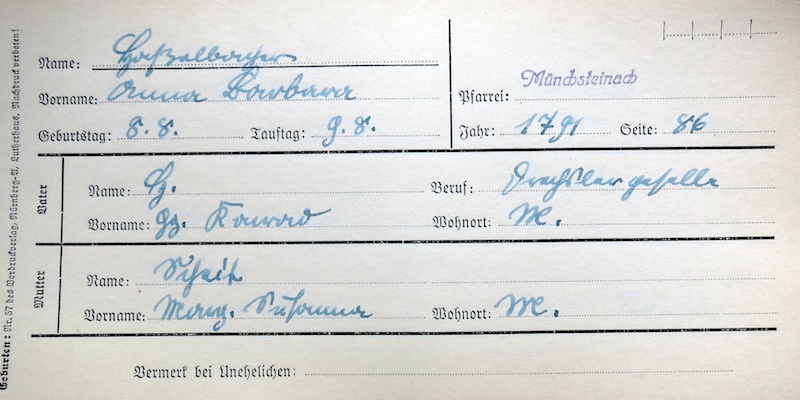 Name: Haßelbacher
Vorname: Anna Barbara
Geburtstag: 8. 8. Tauftag: 9. 8.
Münchsteinach
Pfarrei:
Jahr: 1791 Seite: 86
Vater
Name: H. Beruf: Drechslergeselle
Vorname: Gg. Konrad Wohnort: M.
Mutter
Name: Scheit
Vorname: Marg. Susanna Wohnort: M.
Vermerk bei Unehelichen:
Geburten: Nr. 57 des Vordruckverlag, Nürnberg-A, Lutherhaus. Nachdruck verboten!